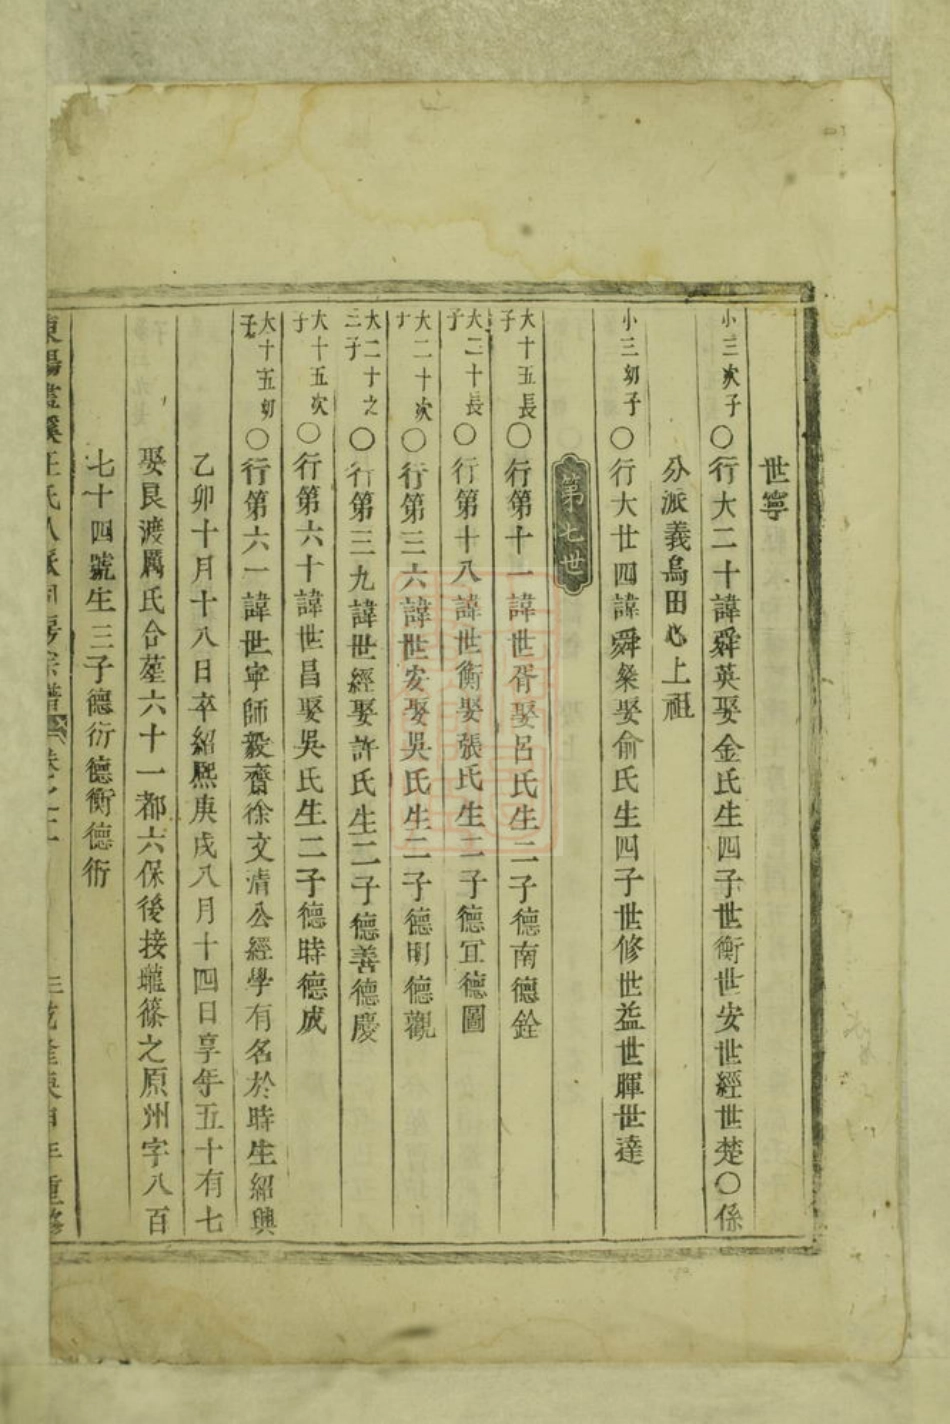 世寧
小三次子○行大二十諱舜英娶金氏生四子世衡世安世經世楚○係
分派義烏田心上祖
小三幼子○行大廿四諱舜粲娶俞氏生四子世修世益世暉世達
第七世
大十五長子○行第十一諱世胥娶呂氏生二子德南德銓
大二十長子○行第十八諱世衡娶張氏生二子德宜德圖
大二十次子○行第三六諱世安娶吳氏生二子德明德觀
大二十之三子○行第三九諱世經娶許氏生二子德善德慶
大十五次子○行第六十諱世昌娶吳氏生二子德時德成
大十五幼子○行第六一諱世寧師毅齋徐文清公經學有名於時生紹興
乙卯十月十八日卒紹熙庚戌八月十四日享年五十有七
娶良渡厲氏合塟六十一都六保後接巃篠之原州字八百
七十四號生三子德衍德衡德術